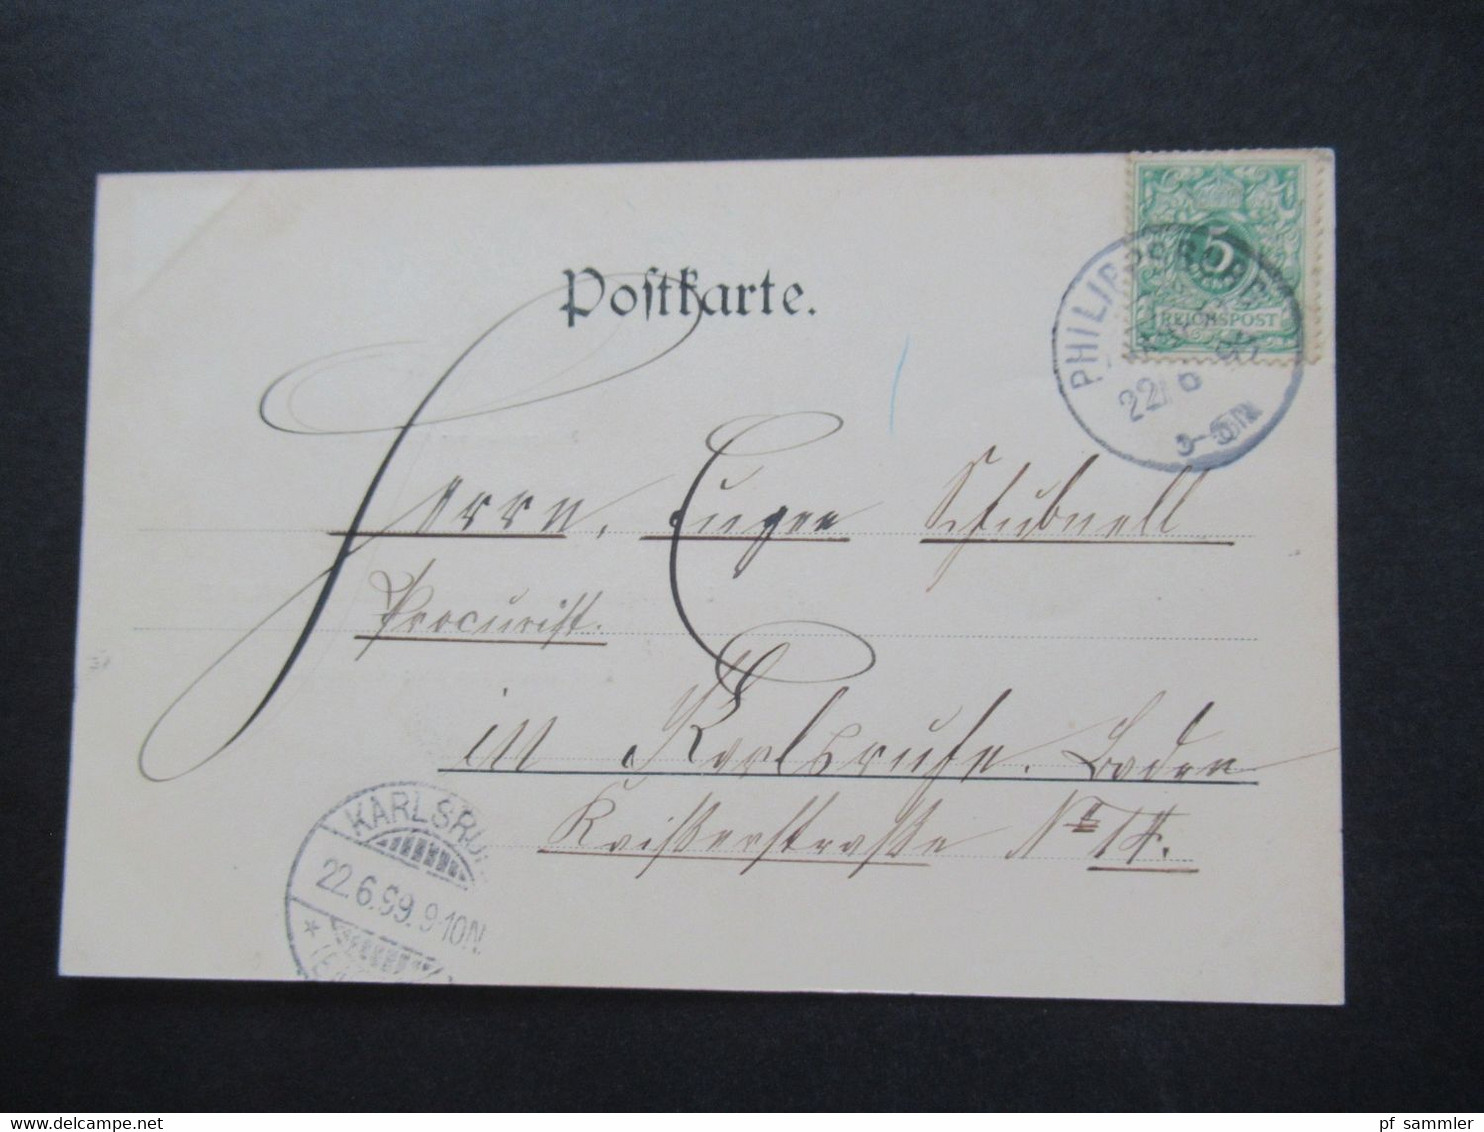 Postkarte.
5
REICHSPOST
PHILIPPSBURG
22/6
Herrn, Eugen Schubnell
Procurist.
in Karlsruhe. Baden
Kaiserstraße № 14.
KARLSRUHE
22.6.99.9-10N.
pf_sammler
www.delcampe.net